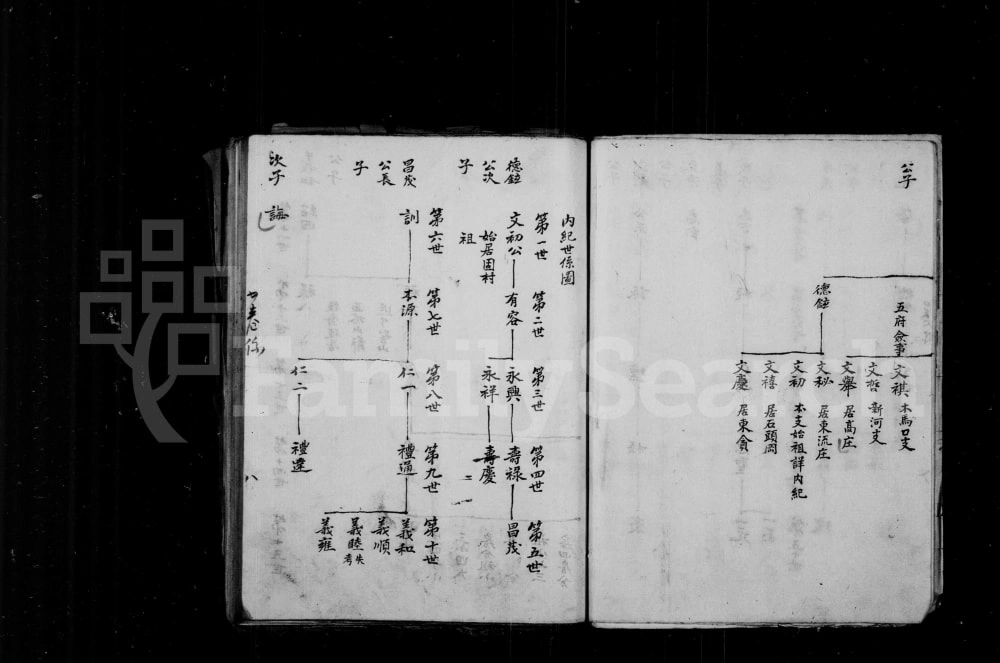 公子
五府僉事
德鉉
文祺 木馬口支
文哲 新河支
文舉 居高庄
文秘 居東流庄
文初 本支始祖詳內紀
文禧 居石頭岡
文慶 居東倉
內紀世係圖
第一世 第二世 第三世 第四世 第五世
德鉉公次子
文初公 有容 永興 壽祿 昌茂
始居固村祖
永祥 壽慶
第六世 第七世 第八世 第九世 第十世
昌茂公長子
訓 本源 仁一 禮通 義和
義順
義睦 失考
義雍
仁二 禮達
次子
八
FamilySearch